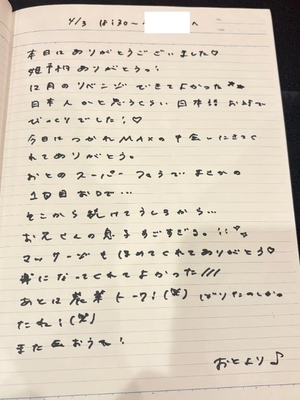 4/3 18:30〜 へ
本日はありがとうございました♡
姫予約ありがとうっ!
12月のリベンジできてよかった**
日本人かと思うくらい日本語お上手で
びっくりでした!♡
今日はつかれMAXの中会いにきてく
れてありがとう。
おとのスーパーフェラでまさかの
1回目お口で…
そこから続けてうしろから…
お兄さんの息子すごすぎる。
マッサージもほめてくれてありがとう♡
楽になってくれてよかった///
あとは トーク!(笑) ばりたのしかっ
たね!(笑)
また会おうね!
おとより♪